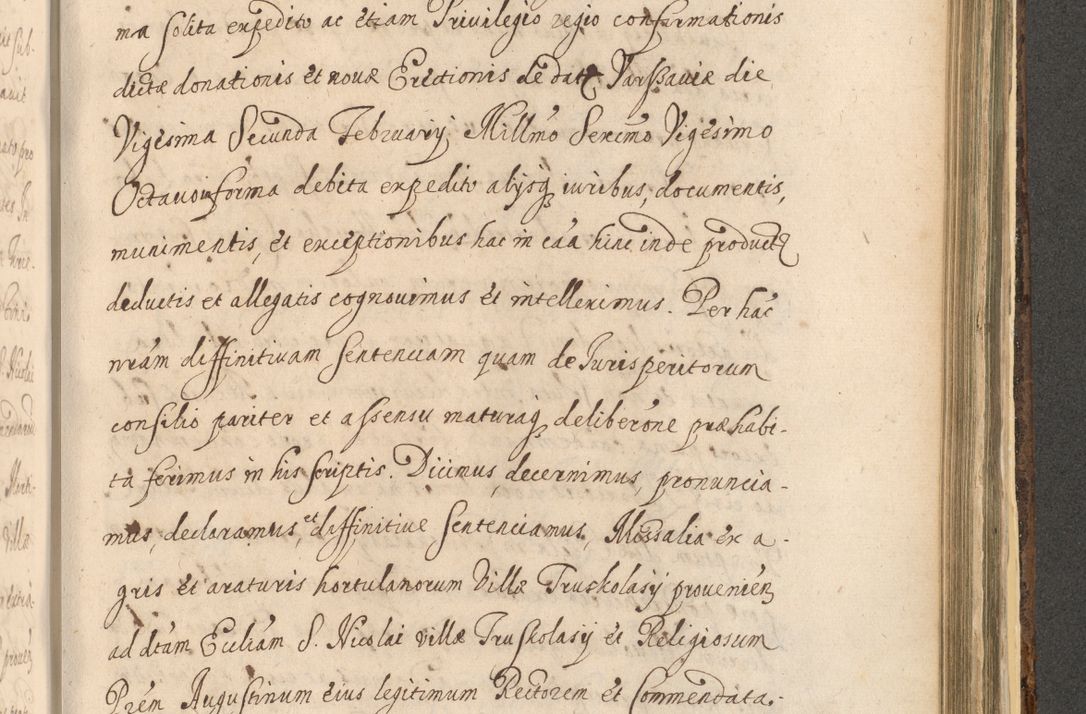 ma solita expedito ac etiam Privilegio regio confirmationis
dictæ donationis et novæ Erectionis de data Varssaviæ die
Vigesima Secunda Februarij Millmo Sexcmo Vigesimo
Octavo in forma debita expedito alijsq iuribus, documentis,
munimentis, et exceptionibus hac in cãa hinc inde product
deductis et allegatis cognovimus et intelleximus. Per hac
nram diffinitivam sentenciam quam de Jurisperitorum
consilio pariter et assensu maturaq deliberone præhabi-
ta ferimus in his scriptis. Dicimus decernimus, pronuncia-
mus, declaramus, et diffinitive sentenciamus, Missalia ex a-
gris et araturis hortulanorum Villæ Truskolasÿ provenien
ad dtam Eccliam S. Nicolai villæ Truskolasÿ et Religiosum
Prem Augustinum eius legitimum Rectorem et Commendata-